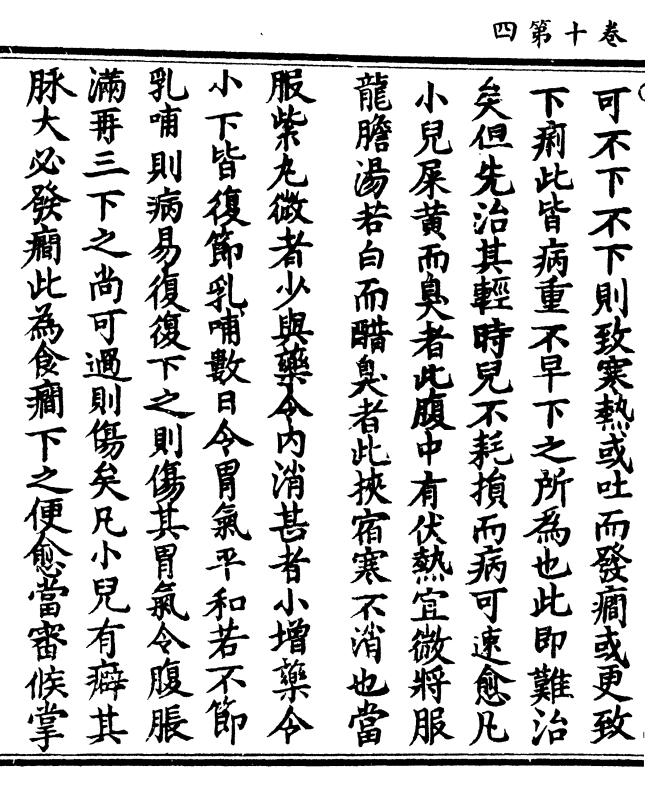 卷十第四
可不下不下則致寒熱或吐而發癇或更致
下痢此皆病重不早下之所為也此即難治
矣但先治其輕時兒不耗損而病可速愈凡
小兒屎黃而臭者此腹中有伏熱宜微將服
龍膽湯若白而醋臭者此挾宿寒不消也當
服紫丸微者少與藥令內消甚者小增藥令
小下皆復節乳哺數日令胃氣平和若不節
乳哺則病易復復下之則傷其胃氣令腹脹
滿再三下之尚可過則傷矣凡小兒有癖其
脉大必發癇此為食癇下之便愈當審候掌